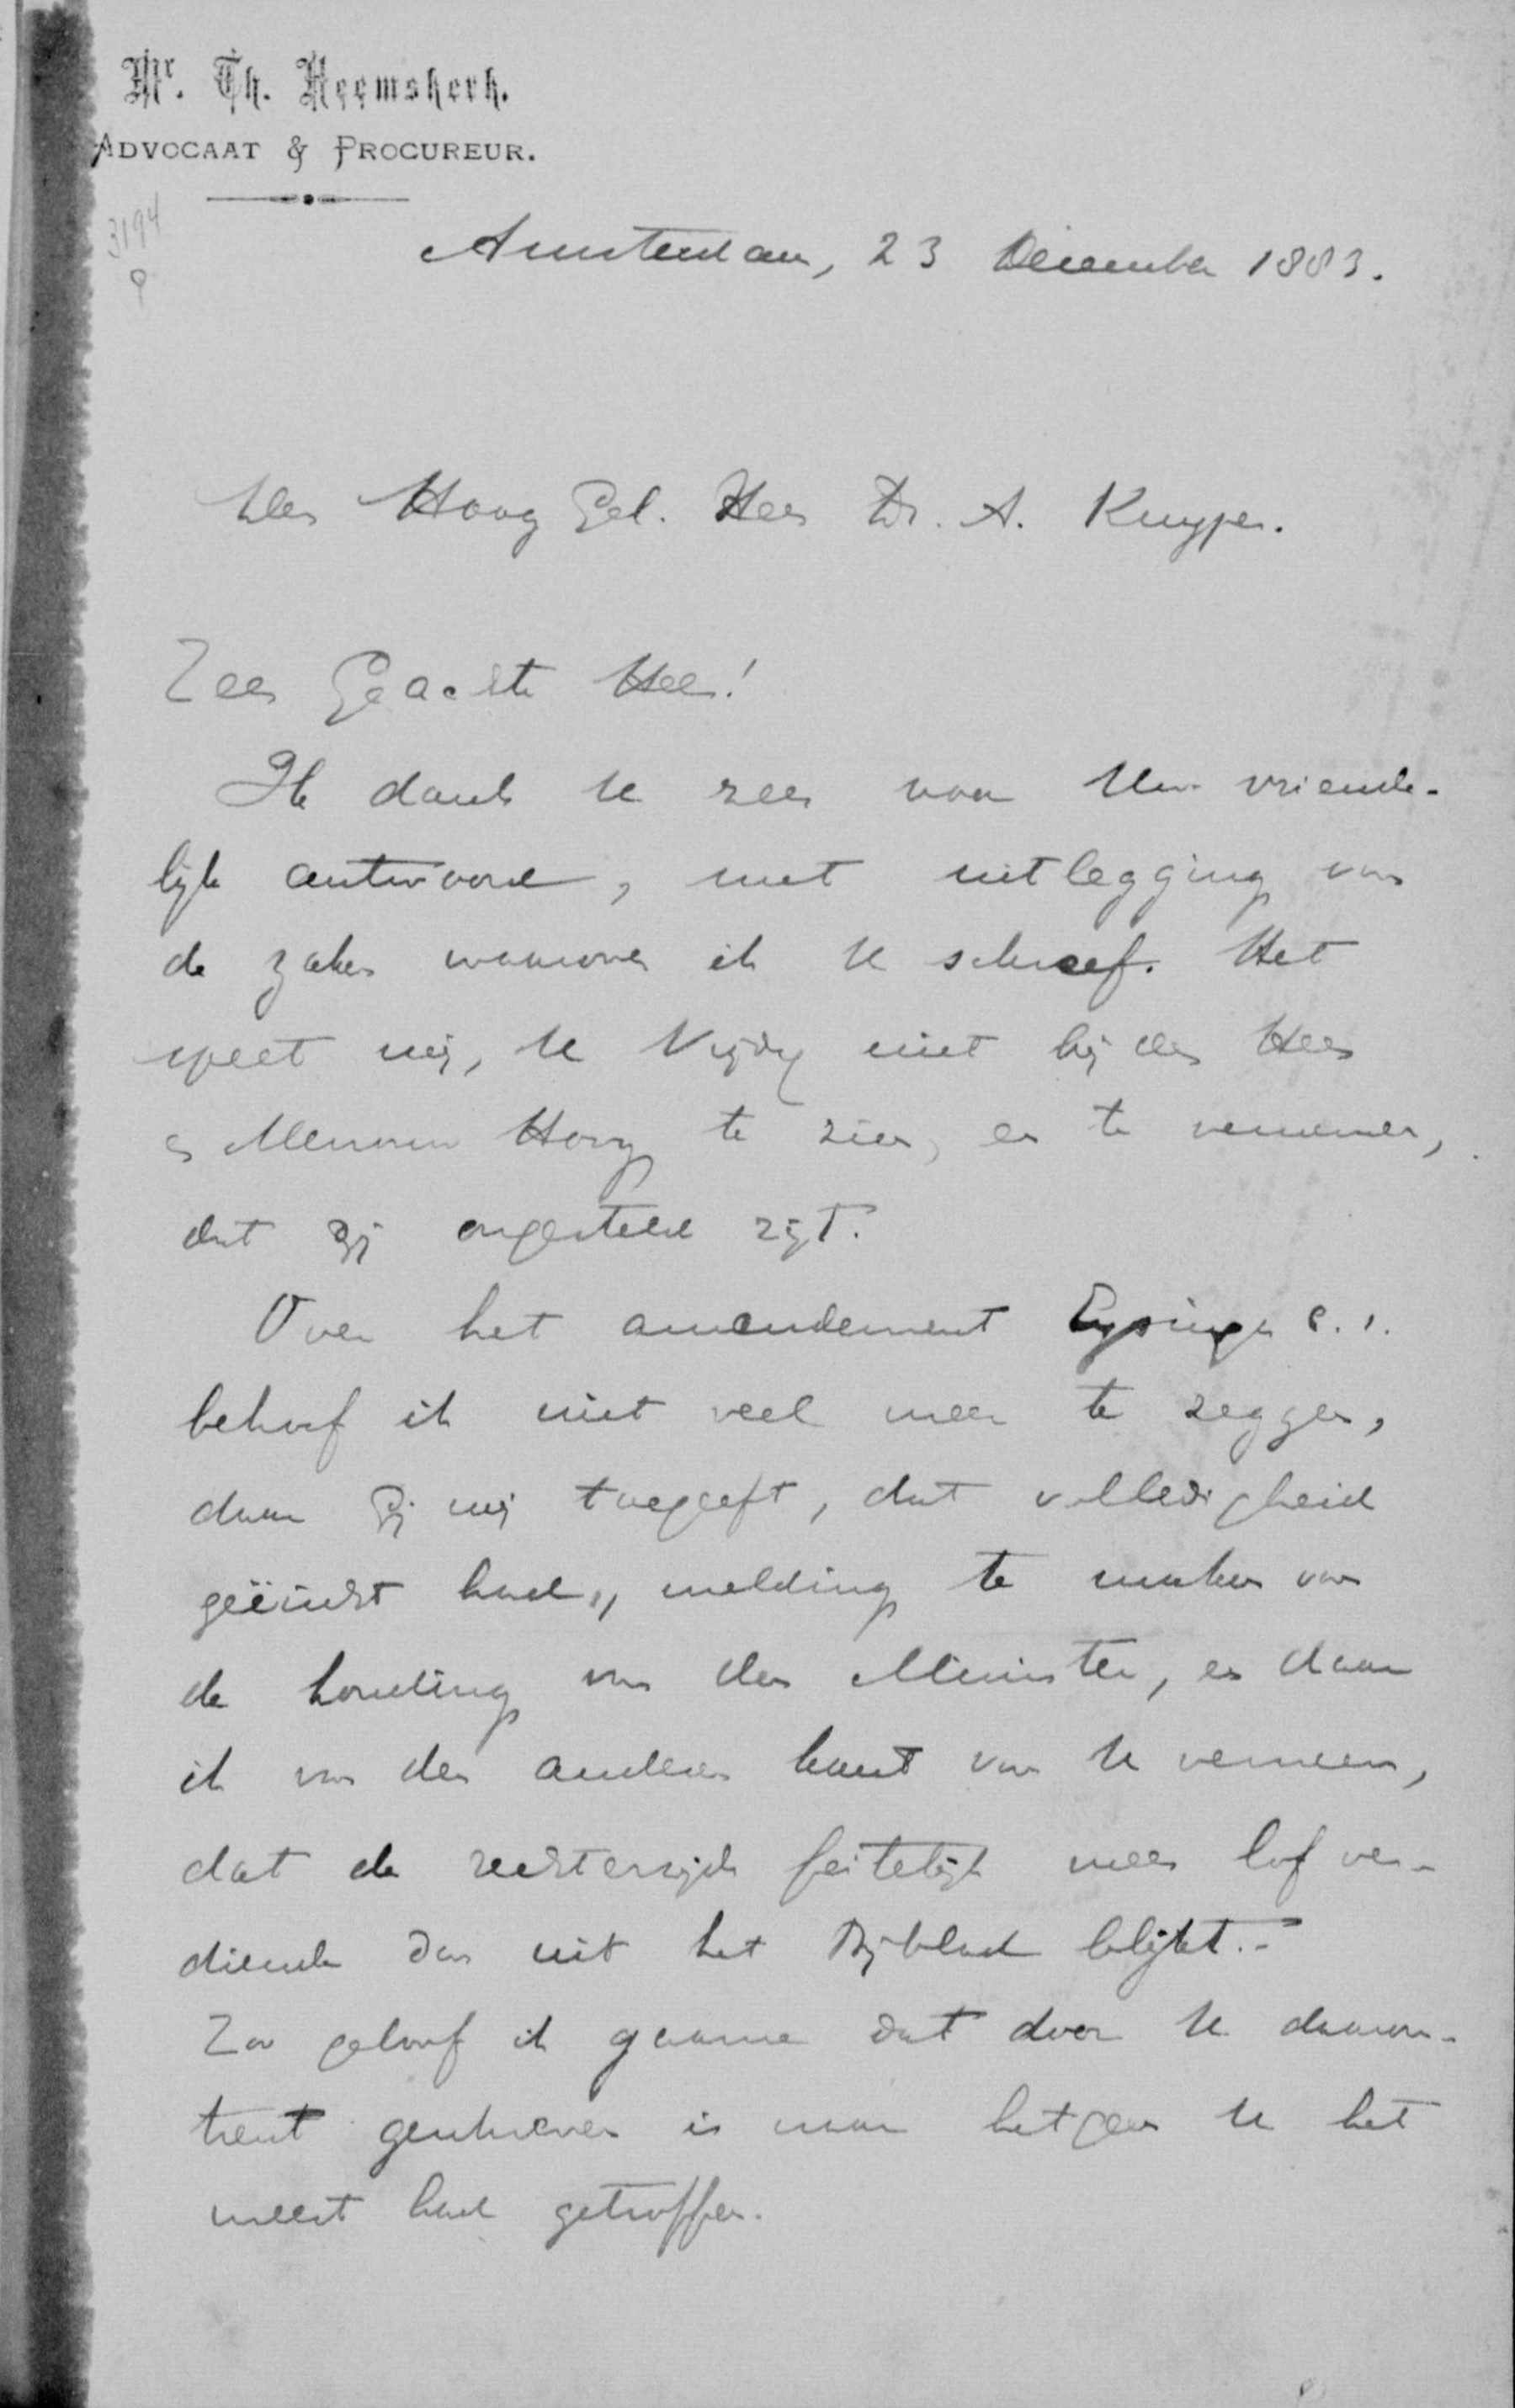 Mr. Th. Heemskerk.
ADVOCAAT & PROCUREUR.
3194
Amsterdam, 23 December 1883.
Den Hoog Gel. Heer Dr. A. Kuyper.
Zeer Geachte Heer!
Ik dank U zeer voor Uw vriende-
lijk antwoord, met uitlegging van
de zaken waarover ik U schreef. Het
speet mij, U Vrijdag niet bij den Heer
en Mevrouw Hovy te zien, en te vernemen,
dat Gij ongesteld zijt.
Over het amendement Eysinga c.s.
behoef ik niet veel meer te zeggen,
daar Gij mij toegeeft, dat volledigheid
geëischt had, melding te maken van
de houding van den Minister, en daar
ik van den anderen kant van U verneem,
dat de rechterzijde feitelijk meer lof ver-
diende dan uit het Bijblad blijkt.-
Zoo geloof ik gaarne dat door U daarom-
trent geschreven is naar hetgeen U het
meest had getroffen.